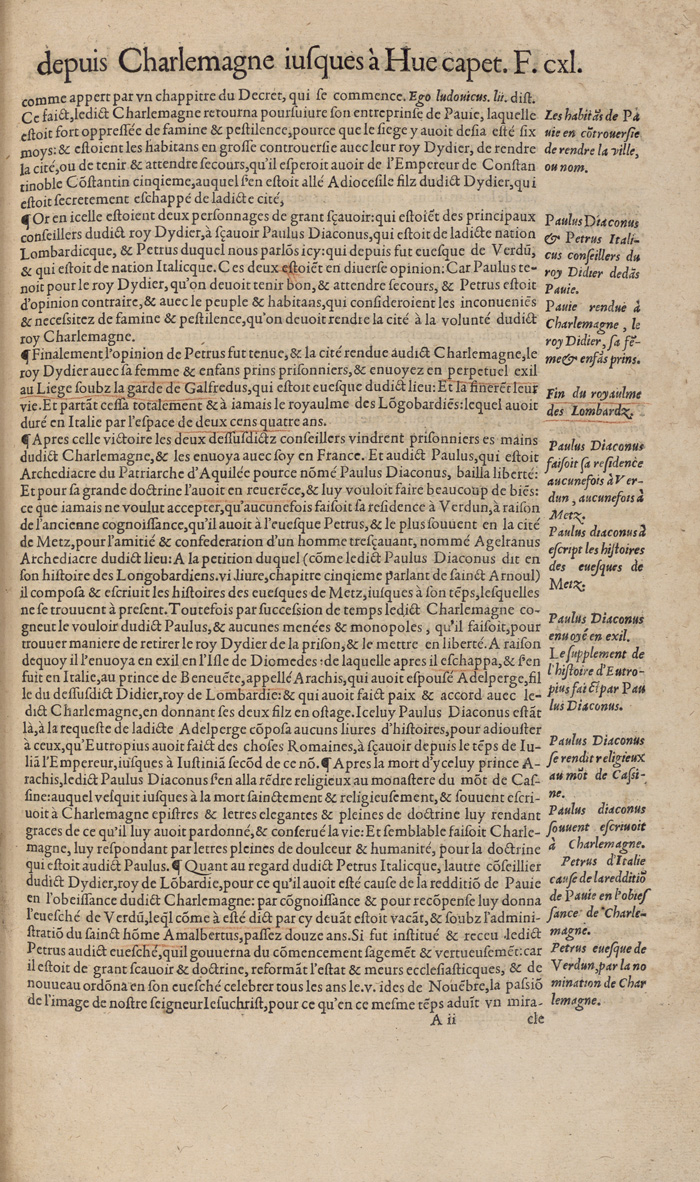 depuis Charlemagne iuſques à Hue capet. F. cxl.
comme appert par vn chappitre du Decret, qui ſe commence. Ego ludouicus. lii. diſt.
Ce faict, ledict Charlemagne retourna pourſuiure ſon entreprinſe de Pauie, laquelle
eſtoit fort oppreſſée de famine & peſtilence, pource que le ſiege y auoit deſia eſté ſix
moys: & eſtoient les habitans en groſſe controuerſie auec leur roy Dydier, de rendre
la cité, ou de tenir & attendre ſecours, qu'il eſperoit auoir de l'Empereur de Conſtan
tinoble Cõſtantin cinqieme, auquel ſ'en eſtoit allé Adioceſile filz dudict Dydier, qui
eſtoit ſecretement eſchappé de ladicte cité,
Les habitãs de Pa
uie en cõtrouerſie
de rendre la ville,
ou nom.
¶ Or en icelle eſtoient deux perſonnages de grant ſçauoir: qui eſtoiẽt des principaux
conſeillers dudict roy Dydier, à ſçauoir Paulus Diaconus, qui eſtoit de ladicte nation
Lombardicque, & Petrus duquel nous parlõs icy: qui depuis fut eueſque de Verdũ,
& qui eſtoit de nation Italicque. Ces deux eſtoiẽt en diuerſe opinion: Car Paulus te-
noit pour le roy Dydier, qu'on deuoit tenir bon, & attendre ſecours, & Petrus eſtoit
d'opinion contraire, & auec le peuple & habitans, qui conſideroient les inconueniẽs
& neceſsitez de famine & peſtilence, qu'on deuoit rendre la cité à la volunté dudict
roy Charlemagne.
Paulus Diaconus
& Petrus Itali-
cus conſeillers du
roy Didier dedãs
Pauie.
Pauie rendue à
Charlemagne, le
roy Didier, ſa fẽ-
me & enfãs prins.
¶ Finalement l'opinion de Petrus fut tenue, & la cité rendue audict Charlemagne, le
roy Dydier auec ſa femme & enfans prins priſonniers, & enuoyez en perpetuel exil
au Liege ſoubz la garde de Galfredus, qui eſtoit eueſque dudict lieu: Et la finerẽt leur
vie. Et partãt ceſſa totalement & à iamais le royaulme des Lõgobardiẽs: lequel auoit
duré en Italie par l'eſpace de deux cens quatre ans.
Fin du royaulme
des Lombardz.
¶ Apres celle victoire les deux deſſuſdictz conſeillers vindrent priſonniers es mains
dudict Charlemagne, & les enuoya auec ſoy en France. Et audict Paulus, qui eſtoit
Archediacre du Patriarche d'Aquilée pource nõmé Paulus Diaconus, bailla liberté:
Et pour ſa grande doctrine l'auoit en reuerẽce, & luy vouloit faire beaucoup de biẽs:
ce que iamais ne voulut accepter, qu'aucunefois faiſoit ſa reſidence à Verdun, à raiſon
de l'ancienne cognoiſſance, qu'il auoit à l'eueſque Petrus, & le plus ſouuent en la cité
de Metz, pour l'amitié & confederation d'un homme treſçauant, nommé Agelranus
Archediacre dudict lieu: A la petition duquel (cõme ledict Paulus Diaconus dit en
ſon hiſtoire des Longobardiens. vi. liure, chapitre cinqieme parlant de ſainct Arnoul)
il compoſa & eſcriuit les hiſtoires des eueſques de Metz, iuſques à ſon tẽps, leſquelles
ne ſe trouuent à preſent. Toutefois par ſucceſſion de temps ledict Charlemagne co-
gneut le vouloir dudict Paulus, & aucunes menées & monopoles, qu'il faiſoit, pour
trouuer maniere de retirer le roy Dydier de la priſon, & le mettre en liberté. A raiſon
dequoy il l'enuoya en exil en l'Iſle de Diomedes: de laquelle apres il eſchappa, & ſ'en
fuit en Italie, au prince de Beneuẽte, appellé Arachis, qui auoit eſpouſé Adelperge, fil
le du deſſuſdict Didier, roy de Lombardie: & qui auoit faict paix & accord auec le-
dict Charlemagne, en donnant ſes deux filz en oſtage. Iceluy Paulus Diaconus eſtãt
là, à la requeſte de ladicte Adelperge cõpoſa aucuns liures d'hiſtoires, pour adiouſter
à ceux, qu'Eutropius auoit faict des choſes Romaines, à ſçauoir depuis le tẽps de Iu-
liã l'Empereur, iuſques à Iuſtiniã ſecõd de ce nõ. ¶ Apres la mort d'yceluy prince A-
rachis, ledict Paulus Diaconus ſ'en alla rẽdre religieux au monaſtere du mõt de Caſ-
ſine: auquel veſquit iuſques à la mort ſainctement & religieuſement, & ſouuent eſcri-
uoit à Charlemagne epiſtres & letres elegantes & pleines de doctrine luy rendant
graces de ce qu'il luy auoit pardonné, & conſerué la vie: Et ſemblable faiſoit Charle-
magne, luy reſpondant par letres pleines de doulceur & humanité, pour la doctrine
qui eſtoit audict Paulus. ¶ Quant au regard dudict Petrus Italicque, lautre cõſeillier
dudict Dydier, roy de Lõbardie, pour ce qu'il auoit eſté cauſe de la redditiõ de Pauie
en l'obeiſſance dudict Charlemagne: par cõgnoiſſance & pour recõpenſe luy donna
l'eueſché de Verdũ, leq̃l cõme à eſté dict par cy deuãt eſtoit vacãt, & ſoubz l'admini-
ſtratiõ du ſainct hõme Amalbertus, paſſez douze ans. Si fut inſtitué & receu ledict
Petrus audict eueſché, quil gouuerna du cõmencement ſagemẽt & vertueuſemẽt: car
il eſtoit de grant ſcauoir & doctrine, reformãt l'eſtat & meurs eccleſiaſticques, & de
nouueau ordõna en ſon eueſché celebrer tous les ans le. v. ides de Nouẽbre, la paſſiõ
de l'image de noſtre ſeigneur Ieſuchriſt, pour ce qu'en ce meſme tẽps aduĩt vn mira-
Paulus Diaconus
faiſoit ſa reſidence
aucunefois à Ver-
dun, aucunefois à
Metz.
Paulus diaconus à
eſcript les hiſtoires
des eueſques de
Metz.
Paulus Diaconus
enuoyé en exil.
Le ſupplement de
l'hiſtoire d'Eutro-
pius faict par Pau
lus Diaconus.
Paulus Diaconus
ſe rendit religieux
au mõt de Caſsi-
ne.
Paulus diaconus
ſouuent eſcriuoit
à Charlemagne.
Petrus d'Italie
cauſe de la redditiõ
de Pauie en l'obieſ
ſance de Charle-
magne.
Petrus eueſque de
Verdun, par la no
mination de Char
lemagne.
A ii cle